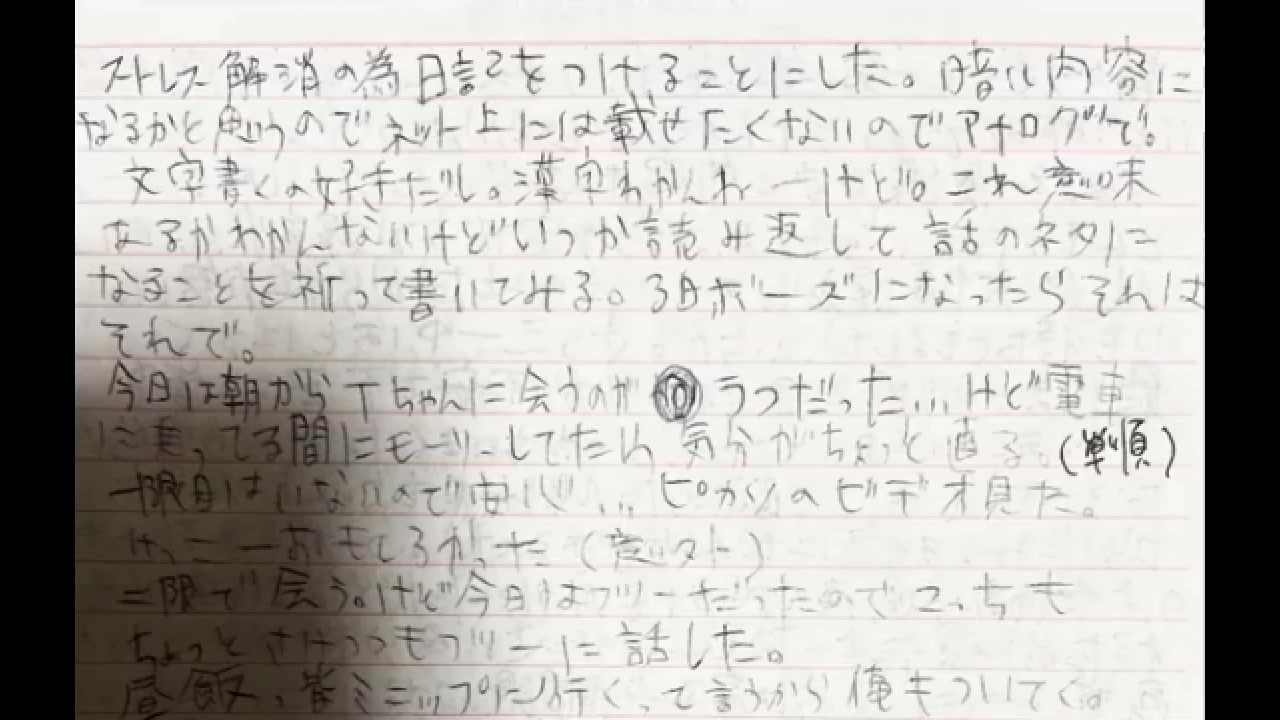 ストレス解消の為日記をつけることにした。暗い内容に
なるかと思うのでネット上には載せたくないのでアナログで。
文字書くの好きだし。漢字わかんねーけど。これ意味
あるかわかんないけどいつか読み返して話のネタに
なることを祈って書いてみる。3日ボーズになったらそれは
それで。
今日は朝からTちゃんに会うのが うつだった...けど電車
に乗ってる間にモーツァしてたら 気分がちょっと直る。(単順)
一限目はいないので安心... ピカソのビデオ見た。
けっこーおもしろかった
二限で会う。けど今日はフツーだったのでこっちも
ちょっとさけつつもフツーに話した。
昼飯、皆ミニップに行くって言うから俺もついてく。